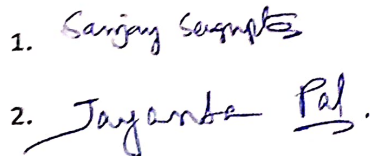 1. Sanjay Sengupta
2. Jayanta Pal.